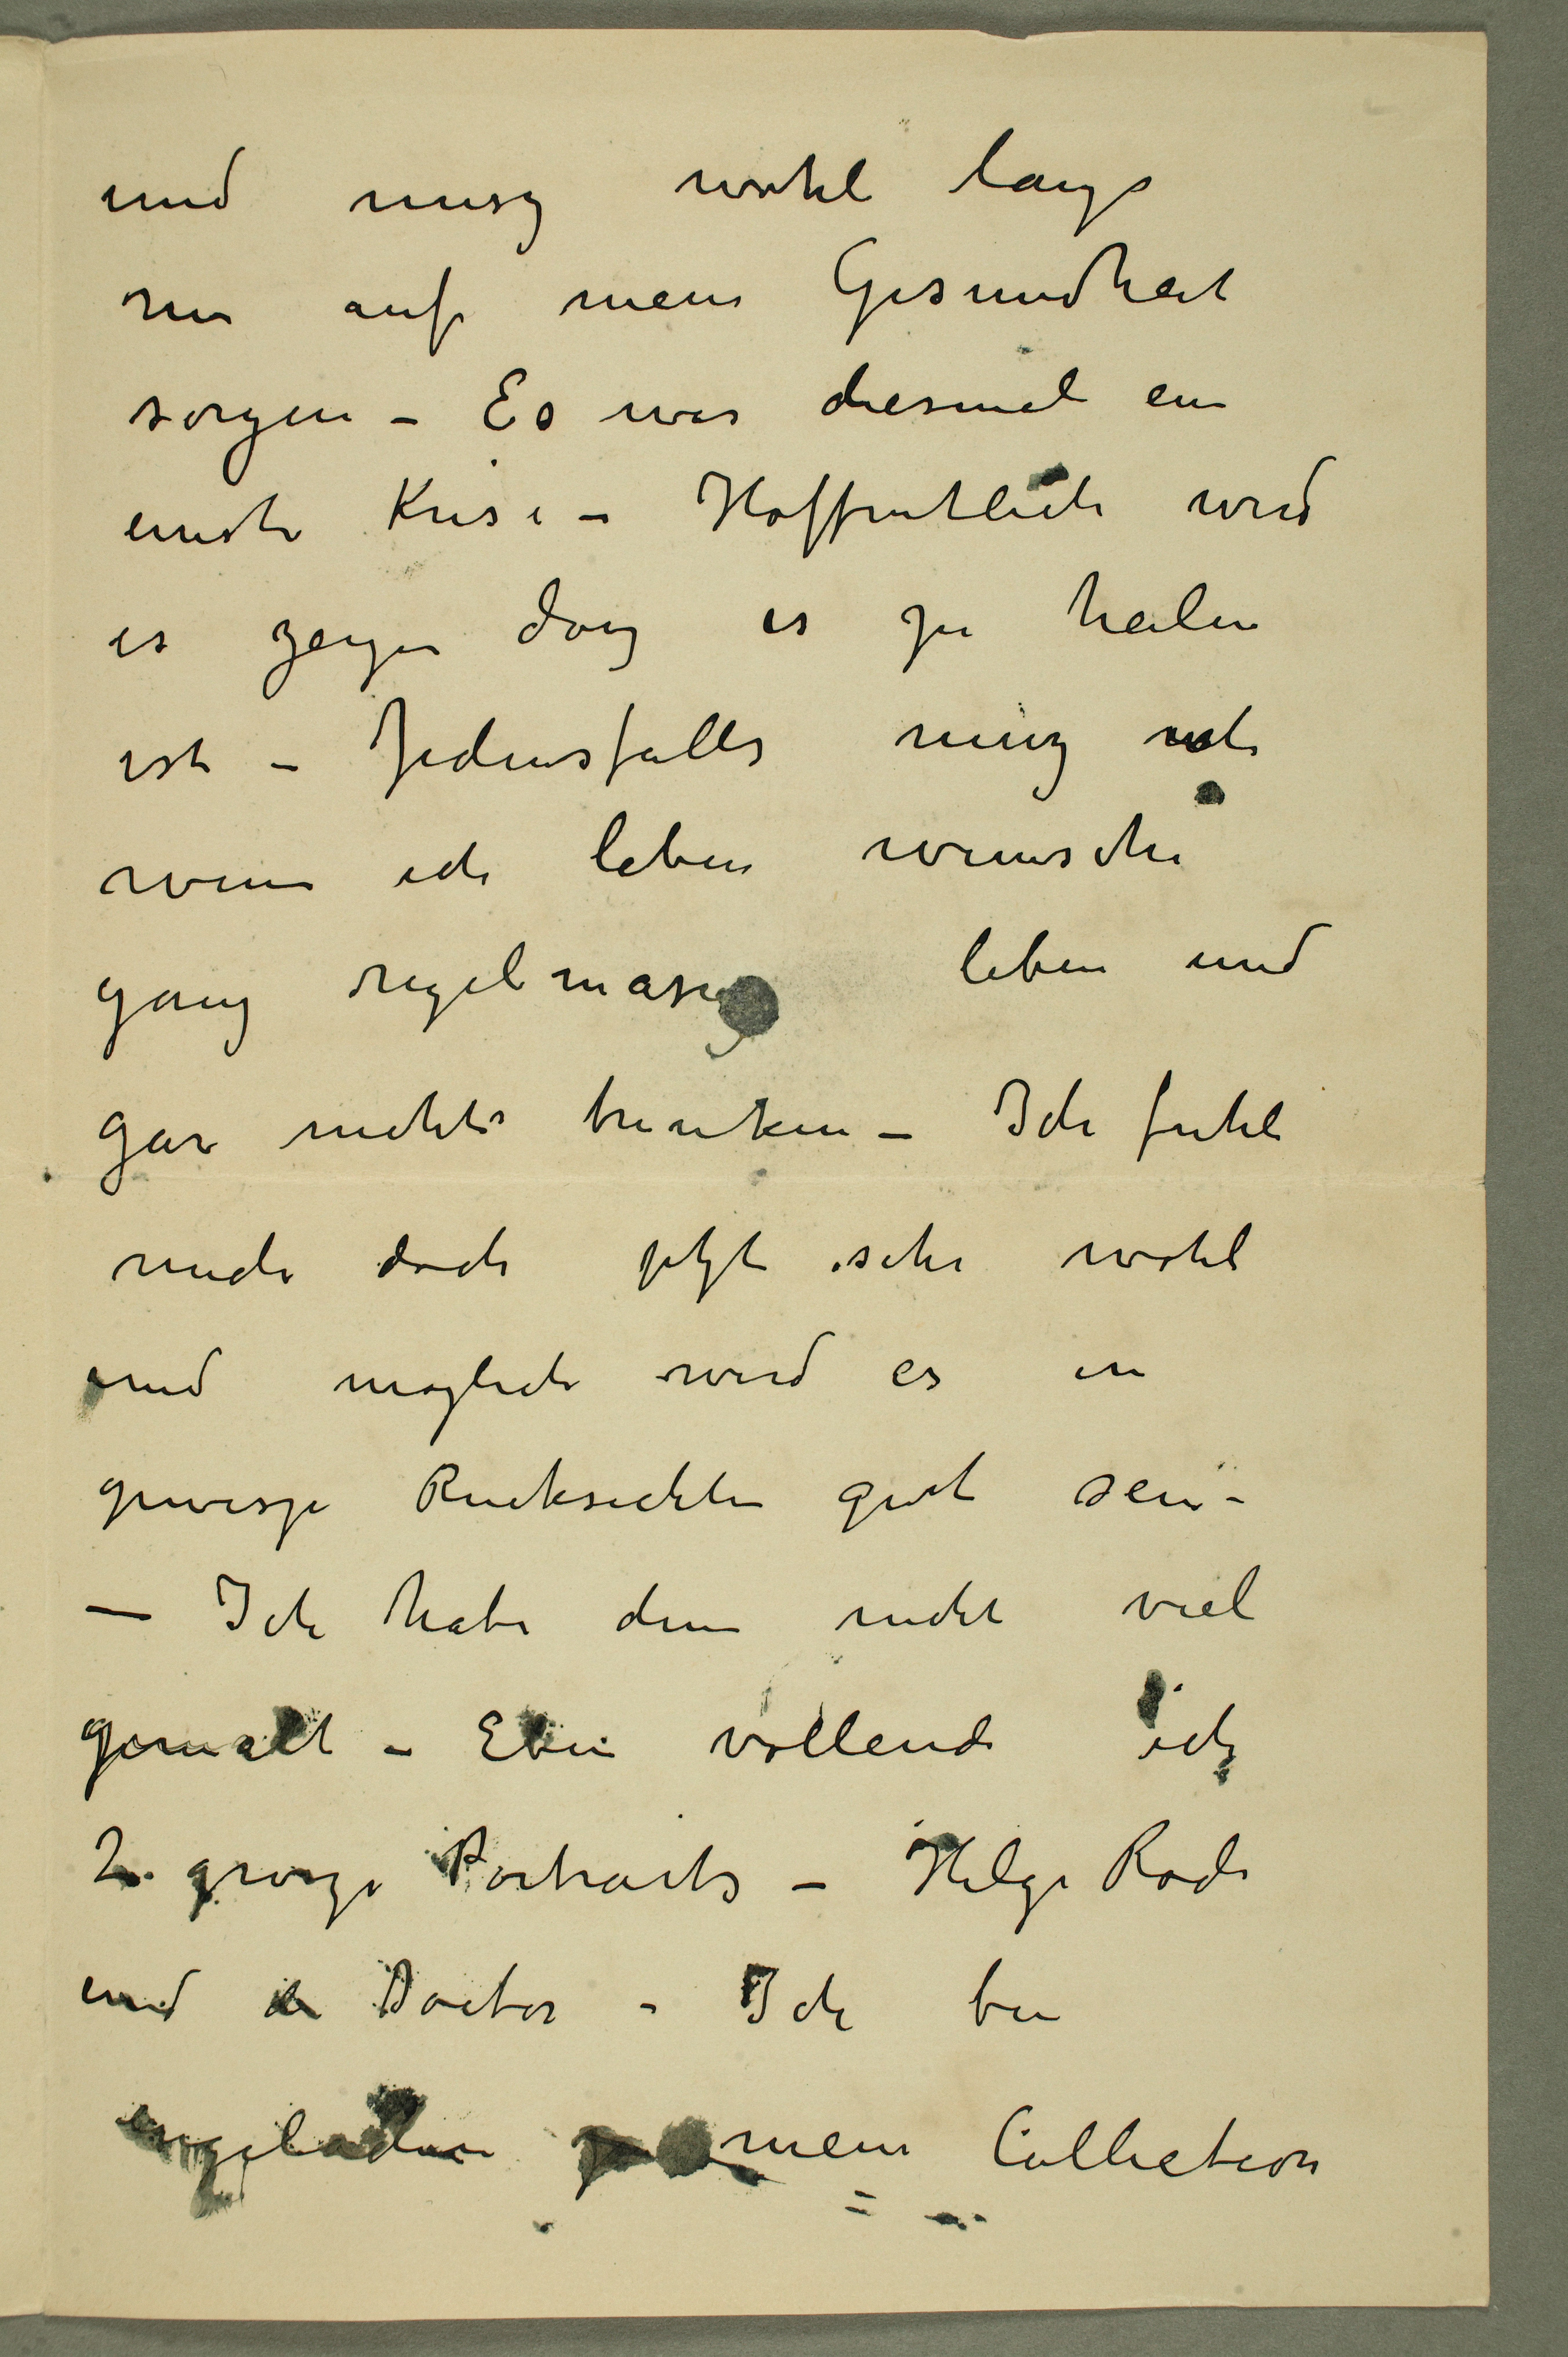 und musz wohl lange
nur auf meine Gesundheit
sorgen – Es war diesmal eine
ernste Krise – Hoffentlich wird
es zeigen dasz es zu heilen
ist – Jedensfalls musz ich
wenn ich leben wunsche
ganz regelmasig leben und
gar nichts trinken – Ich fuhle
mich doch jetzt sehr wohl
und moglich wird es in
gewisze Rucksichten gut sein –
– Ich habe denn nicht viel
gemalt – Eben vollende ich
2 grosze Portraits – Helge Rode
und der Doctor – Ich bin
eingeladen meine Collection